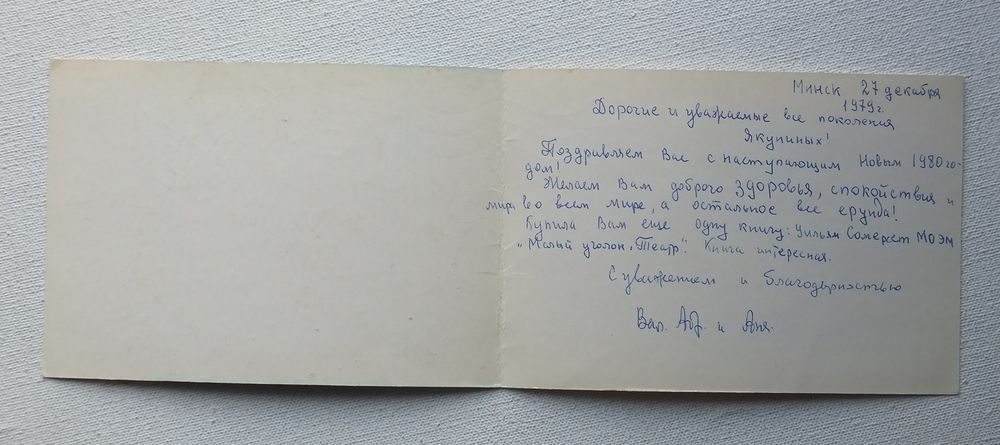 Минск 27 декабря
1979г.
Дорогие и уважаемые все поколения
Якупиных!
Поздравляем Вас с наступающим Новым 1980 го-
дом!
Желаем Вам доброго здоровья, спокойствия и
мира во всем мире, а остальное все ерунда!
Купила Вам еще одну книгу: Уильям Сомерсет МОЭМ
„Малый уголок, Театр". Книга интересная.
С уважением и благодарностью
Вал. и Аня.